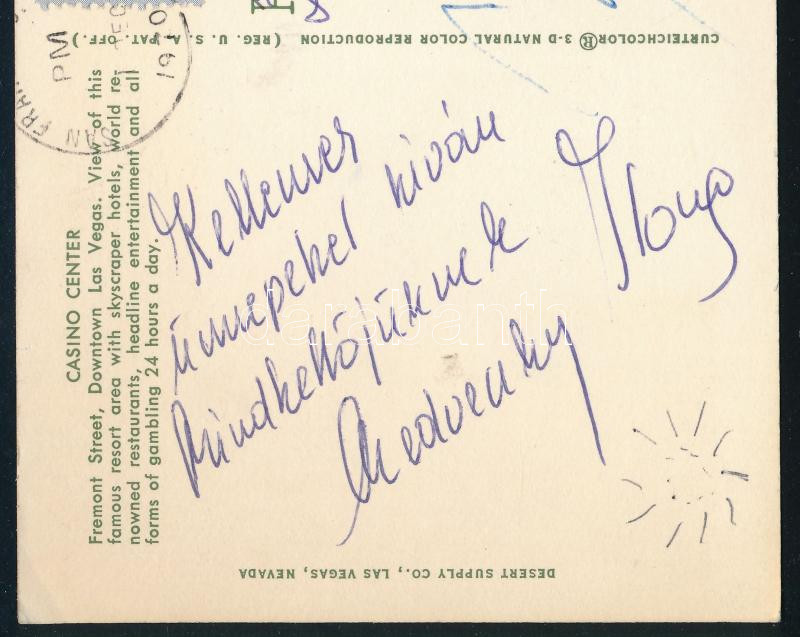 CASINO CENTER
Fremont Street, Downtown Las Vegas. View of this
famous resort area with skyscraper hotels, world re-
nowned restaurants, headline entertainment and all
forms of gambling 24 hours a day.
CURTEICHCOLOR® 3-D NATURAL COLOR REPRODUCTION (REG. U. S. A. PAT. OFF.)
SAN FRAN
PM
DEC
1970
Kellemes
ünnepeket kíván
Mindkettőjüknek
Medveczky Ilona
darabanth
DESERT SUPPLY CO., LAS VEGAS, NEVADA